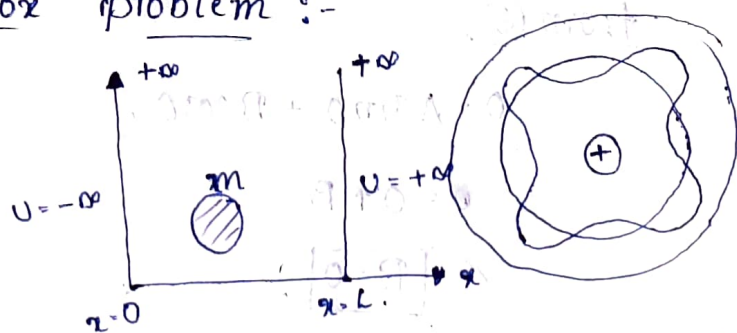 ox problem :-
+∞ +∞
m
U = -∞ U = +∞ +
x
x=0 x=L.